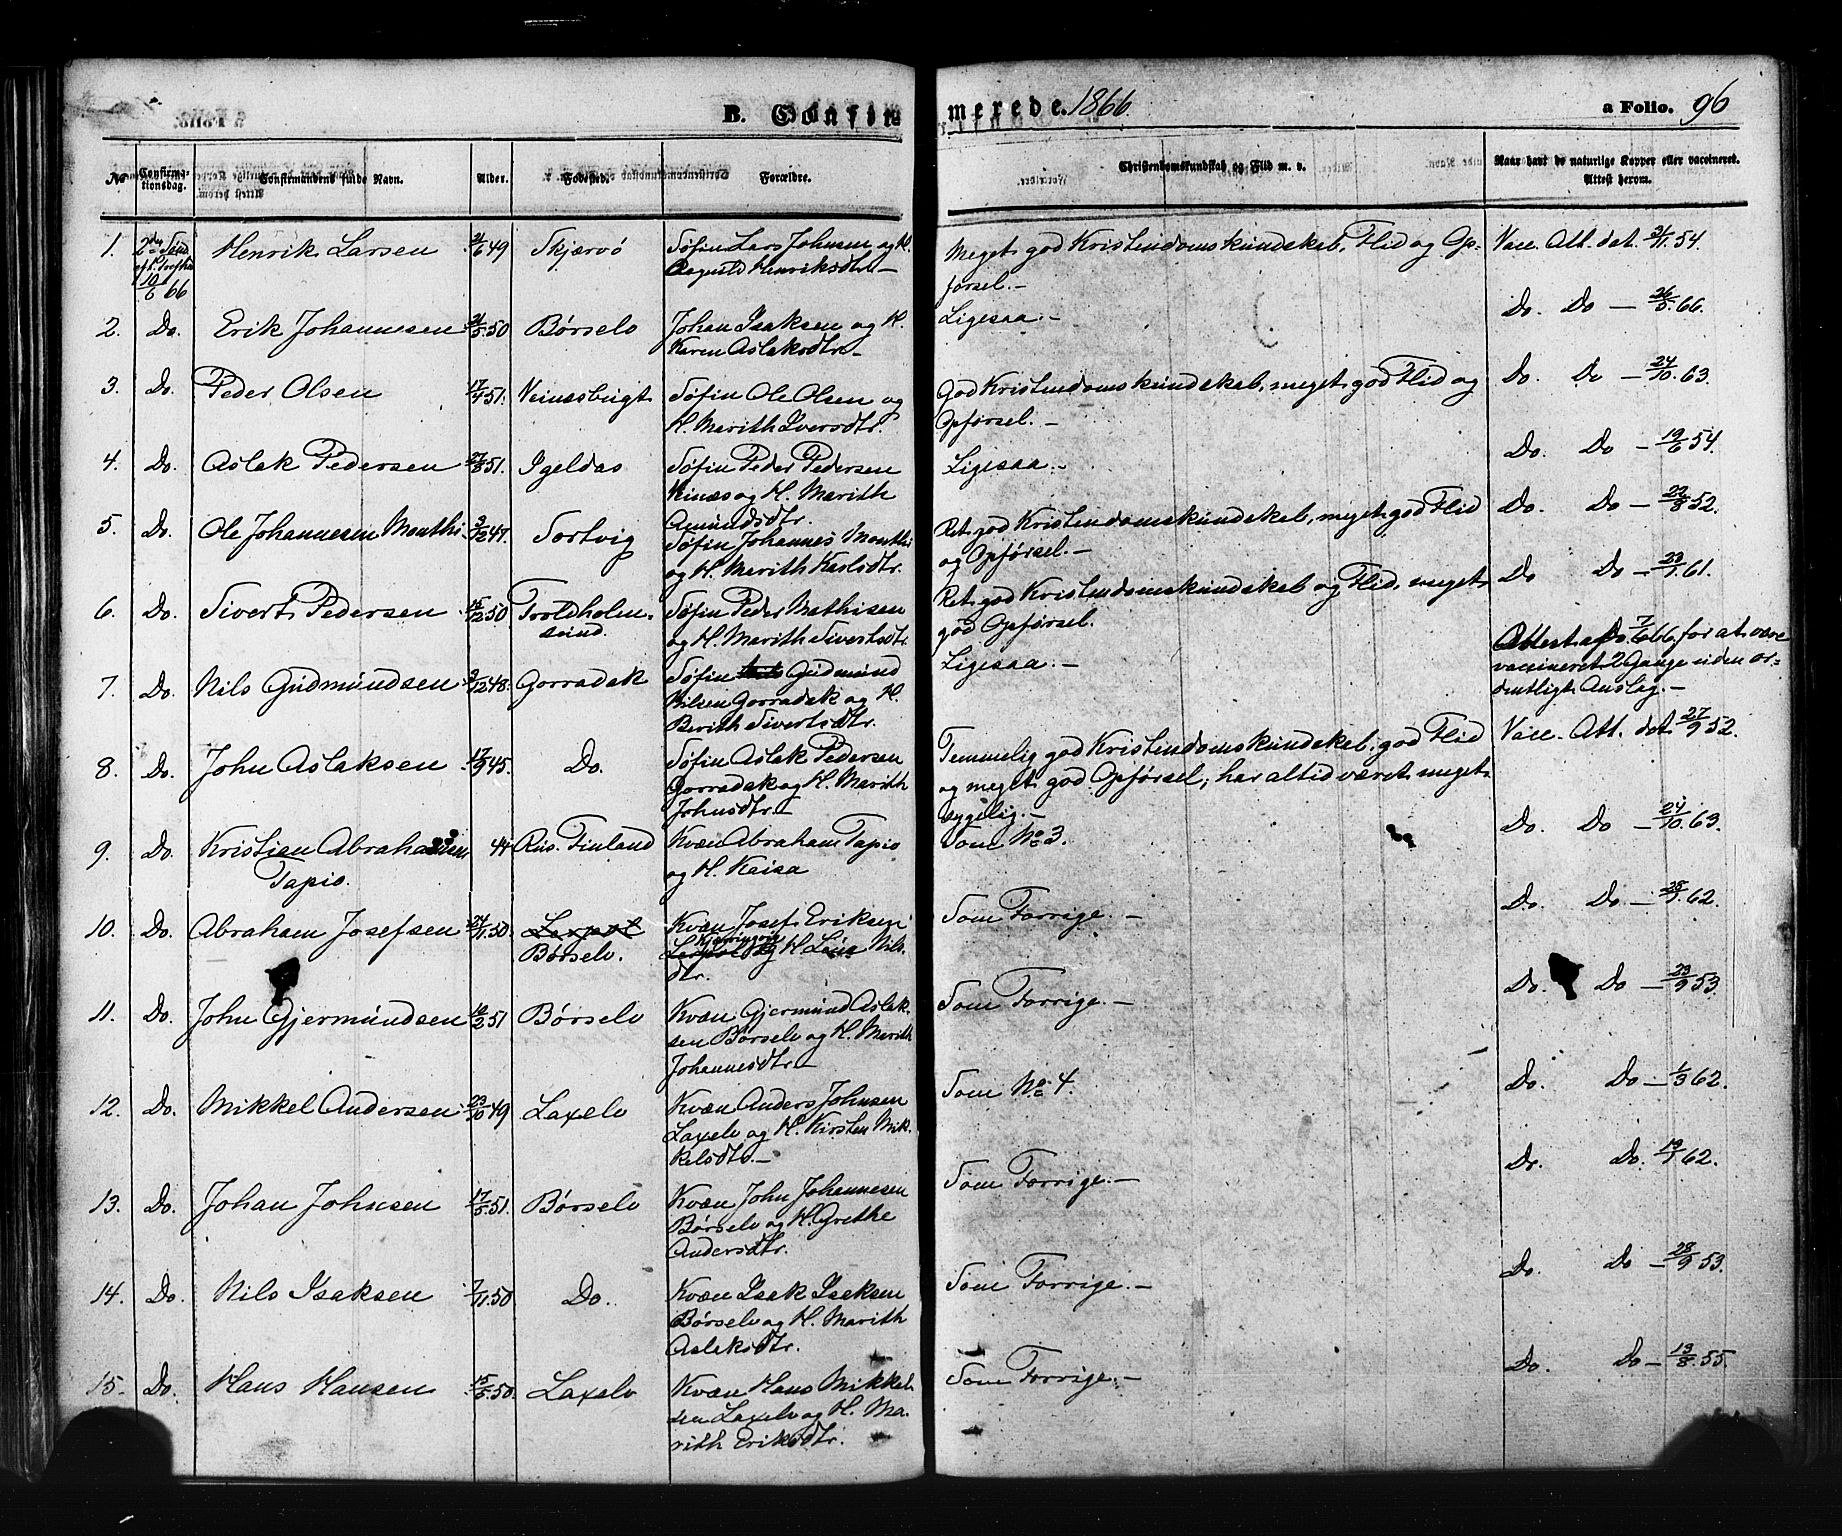 B. Confirmerede. 1866. a Folio. 96
No Confirmationsdag. Confirmandens fulde Navn. Alder. Fødested. Forældre. Christendomskundskab og Flid m. v. Naar havt de naturlige Kopper eller vaccineret. Attest herom.
1. 2den Sønd. eft. Trefhd. 10/6 66 Henrik Larsen 49 Skjærvö Søfin Lars Johnsen og H. Meget god Kristendomskundskab, Flid og Op- Vacc. Att. det. 54.
Henriksdtr. — førsel. —
2. Do. Erik Johannesen 50 Børselv Johan Isaksen og H. Ligesaa. — Do. Do — 26/5 66.
Karen Aslaksdtr. —
3. Do. Peder Olsen 17/4 51. Veinesbugt Søfin Ole Olsen og God Kristendomskundskab, meget god Flid og Do. Do — 24/10 63.
H. Marith Iversdtr. Opførsel. —
4. Do. Aslak Pedersen 27/8 51. Igeldas Søfin Peder Pedersen Ligesaa. — Do. Do — 19/6 54.
Kinæs og H. Marith
Amundsdtr.
5. Do. Ole Johannesen Monthi 3/12 47. Sortvig Søfin Johannes Monthi Ret god Kristendomskundskab, meget god Flid Do. Do — 22/8 52.
og H. Marith Karlsdtr. og Opførsel. —
6. Do. Sivert Pedersen 15/12 50 Troldholm- Søfin Peder Mathisen Ret god Kristendomskundskab og Flid, meget Do Do — 61.
sund. og H. Marith Sivertsdtr. god Opførsel.
7. Do. Nils Gudmundsen 3/12 48. Gorradak Søfin Gudmund Ligesaa. — Attest af 7/6 66 for at være
Nilsen Gorradak og H. vaccineret 2 Gange uden or-
Berith Sivertsdtr. dentligt Anslag. —
8. Do. John Aslaksen 17/9 45. Do. Søfin Aslak Pedersen Temmelig god Kristendomskundskab, god Flid Vacc. Att. det. 27/9 52.
Gorradak og H. Marith og meget god Opførsel; har altid været meget
Johnsdtr. — sygelig. —
9. Do. Kristian Abrahamsen 44 Rus. Finland Kvæn Abraham Tapio Som No. 3. Do. Do — 24/10 63.
Tapio. og H. Kaisa
10. Do. Abraham Josefsen 24/11 50. Laxpol Kvæn Josef Eriksen Som Forrige. — Do. Do — 62.
Børselv. og H. Nils-
dtr.
11. Do. John Gjermundsen 51 Børselv Kvæn Gjermund Aslak- Som Forrige. — Do. Do — 23/9 53.
sen Børselv og H. Marith
Johannesdtr. —
12. Do. Mikkel Andersen 23/10 49 Laxelv Kvæn Anders Johnsen Som No. 4. Do. Do — 62.
Laxelv og H. Kirsten Mik-
kelsdtr. —
13. Do. Johan Johnsen 17/5 51. Børselv Kvæn John Johannesen Som Forrige. — Do. Do. 62.
Børselv og H. Grethe
Andersdtr.
14. Do. Nils Isaksen 7/11 50 Do. Kvæn Isak Isaksen Som Forrige. — Do. Do — 28/9 53.
Børselv og H. Marith
Aslaksdtr.
15. Do. Hans Hansen 15/5 50 Laxelv Kvæn Hans Mikkel- Som Forrige. — Do. Do — 13/8 55.
sen Laxelv og H. Ma-
rith Eriksdtr.